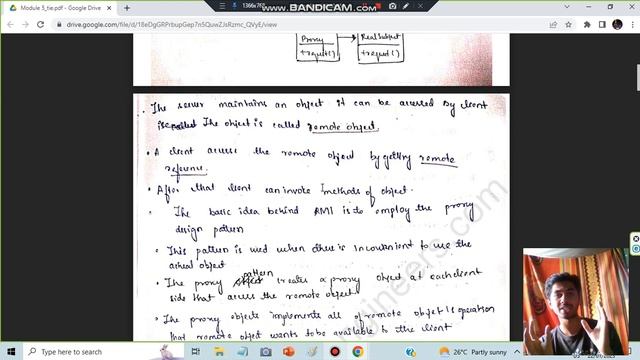 Module 5_tie.pdf - Google Drive
1366x768
WWW.BANDICAM.COM
drive.google.com/file/d/18eDgGRPrbupGep7n5QuwZJsRzmc_QVyE/view
Proxy
+request()
RealSubject
+request()
. The server maintains an object it can be accessed by client
The object is called remote object.
. A client access the remote object by getting remote
reference.
. After that client can invoke methods of object.
. The basic idea behind RMI is to employ the proxy
design pattern
. This pattern is used when there is inconvenient to use the
actual object
. The proxy pattern creates a proxy object at each client
side that access the remote object
. The proxy objects implements all of remote object's operation
that remote object wants to be available to the client
Type here to search
26°C Partly sunny